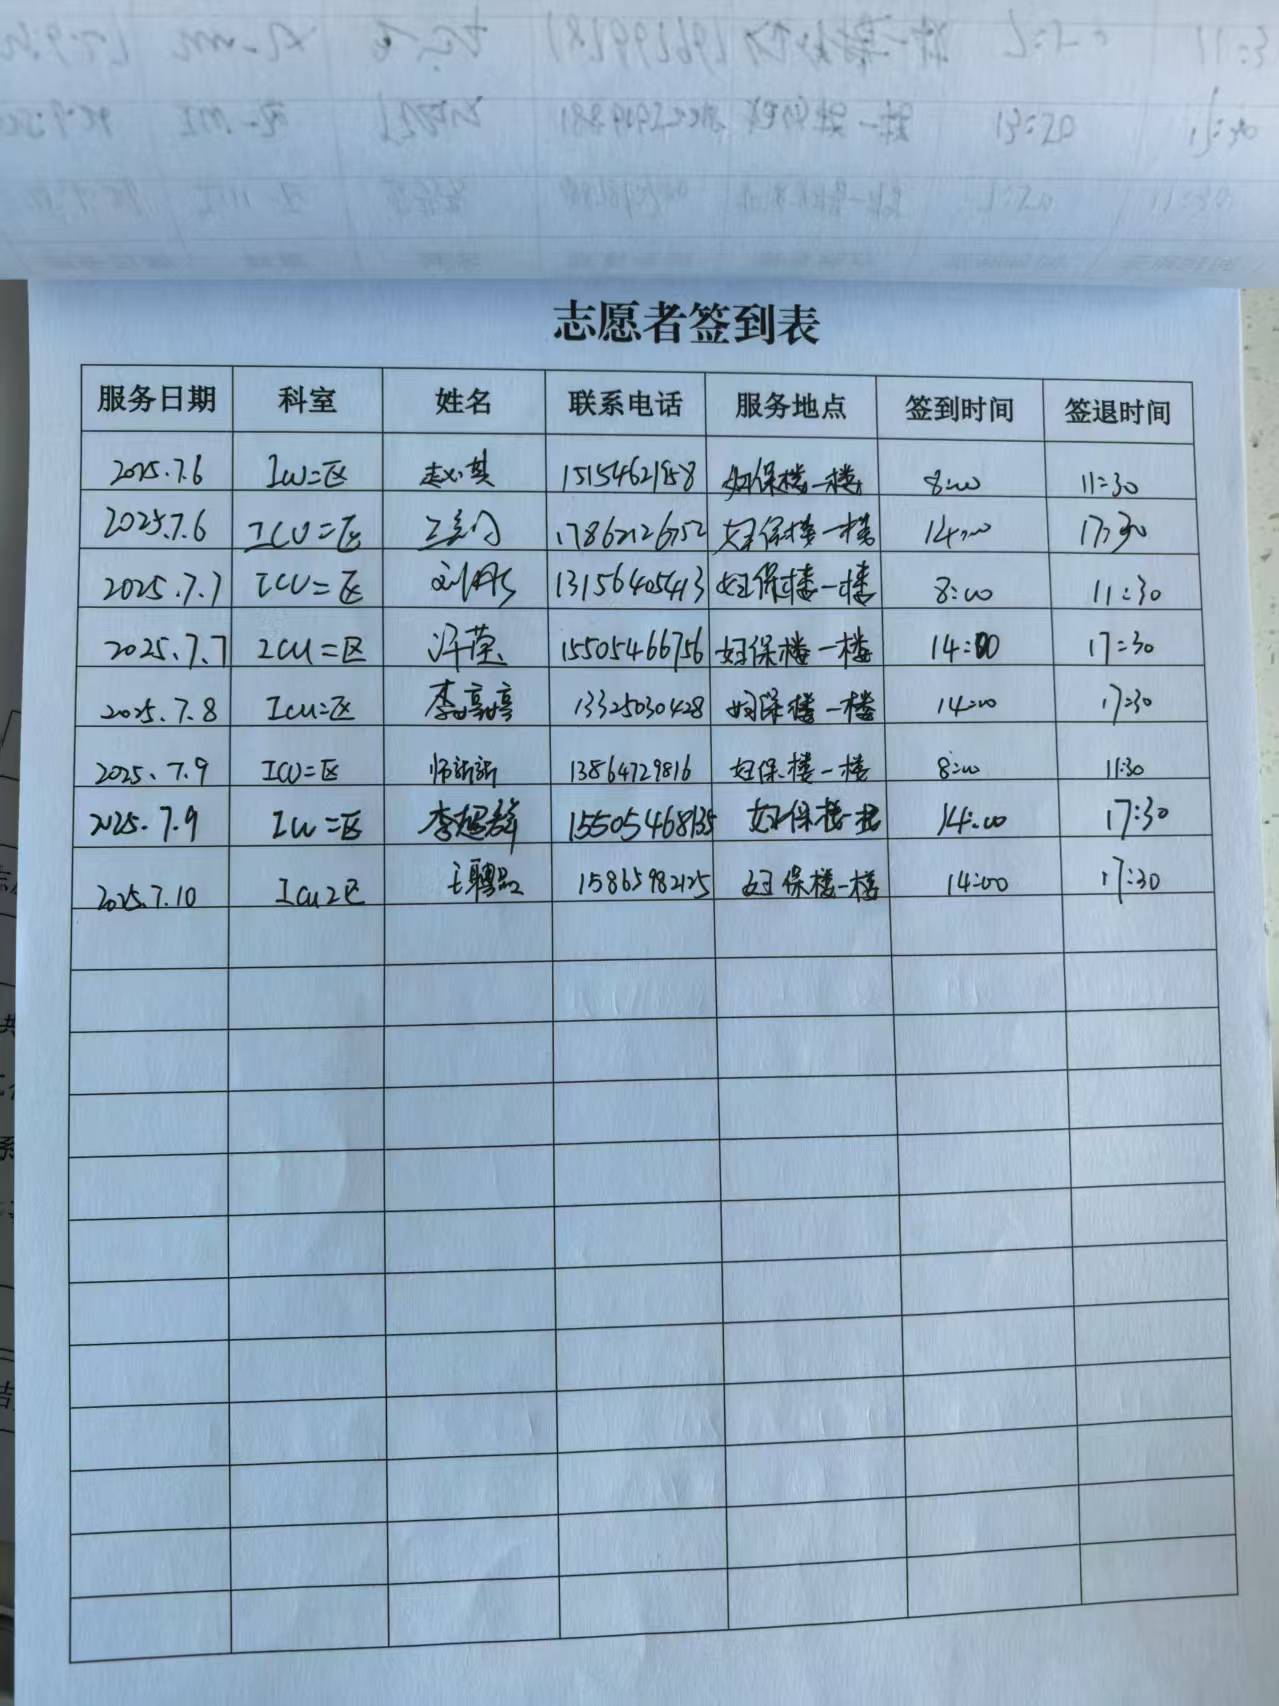 志愿者签到表
服务日期 科室 姓名 联系电话 服务地点 签到时间 签退时间
2025.7.6 ICU二区 赵淇 15154621958 妇保楼一楼 8:00 11:30
2025.7.6 ICU二区 17862126752 妇保楼一楼 14:00 17:30
2025.7.7 ICU二区 刘彤 13156405413 妇保楼一楼 8:00 11:30
2025.7.7 ICU二区 许莹 15505466756 妇保楼一楼 14:00 17:30
2025.7.8 ICU二区 李婷婷 13325030428 妇保楼一楼 14:00 17:30
2025.7.9 ICU二区 师新新 13864729816 妇保楼一楼 8:00 11:30
2025.7.9 ICU二区 李超群 15505468135 妇保楼一楼 14:00 17:30
2025.7.10 ICU2区 15865982125 妇保楼一楼 14:00 17:30